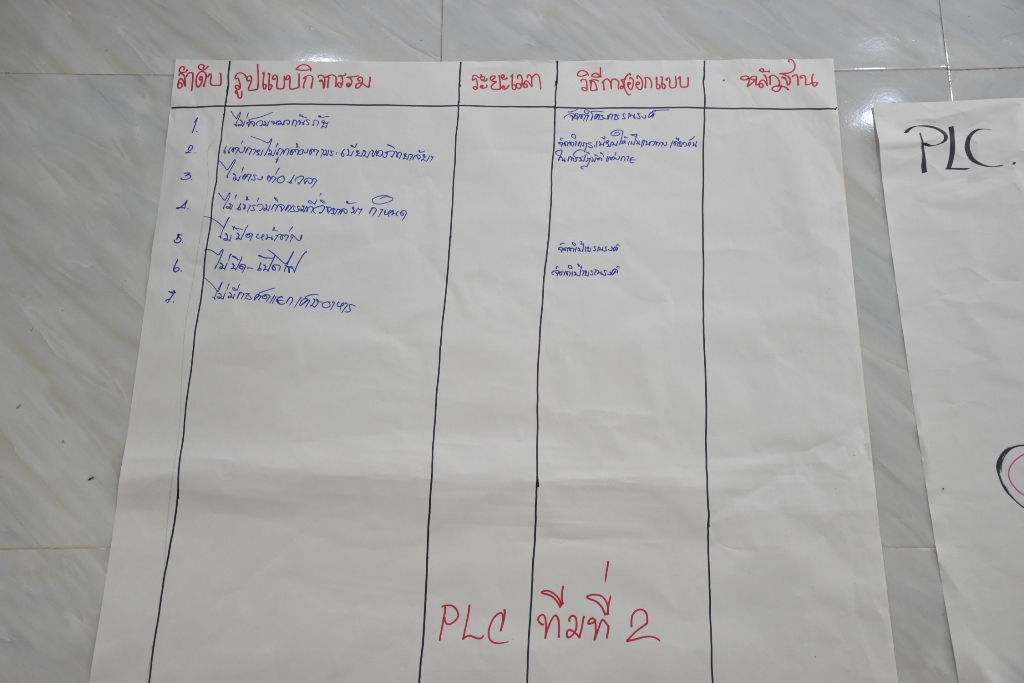 ลำดับ รูปแบบกิจกรรม ระยะเวลา วิธีการออกแบบ หลักฐาน
1. ไม่สวมหมวกนิรภัย จัดทำโครงการรณรงค์
2. แต่งกายไม่ถูกต้องตามระเบียบของวิทยาลัยฯ จัดทำกฎระเบียบให้เป็นแนวทางเดียวกัน
ในการปฏิบัติแต่งกาย
3. ไม่ตรงต่อเวลา
4. ไม่เข้าร่วมกิจกรรมที่วิทยาลัยฯ กำหนด
5. ไม่ปิดหน้าต่าง จัดทำป้ายรณรงค์
6. ไม่ปิด-เปิดไฟ จัดทำป้ายรณรงค์
7. ไม่มีการคัดแยกเศษอาหาร
PLC ทีมที่ 2
PLC.